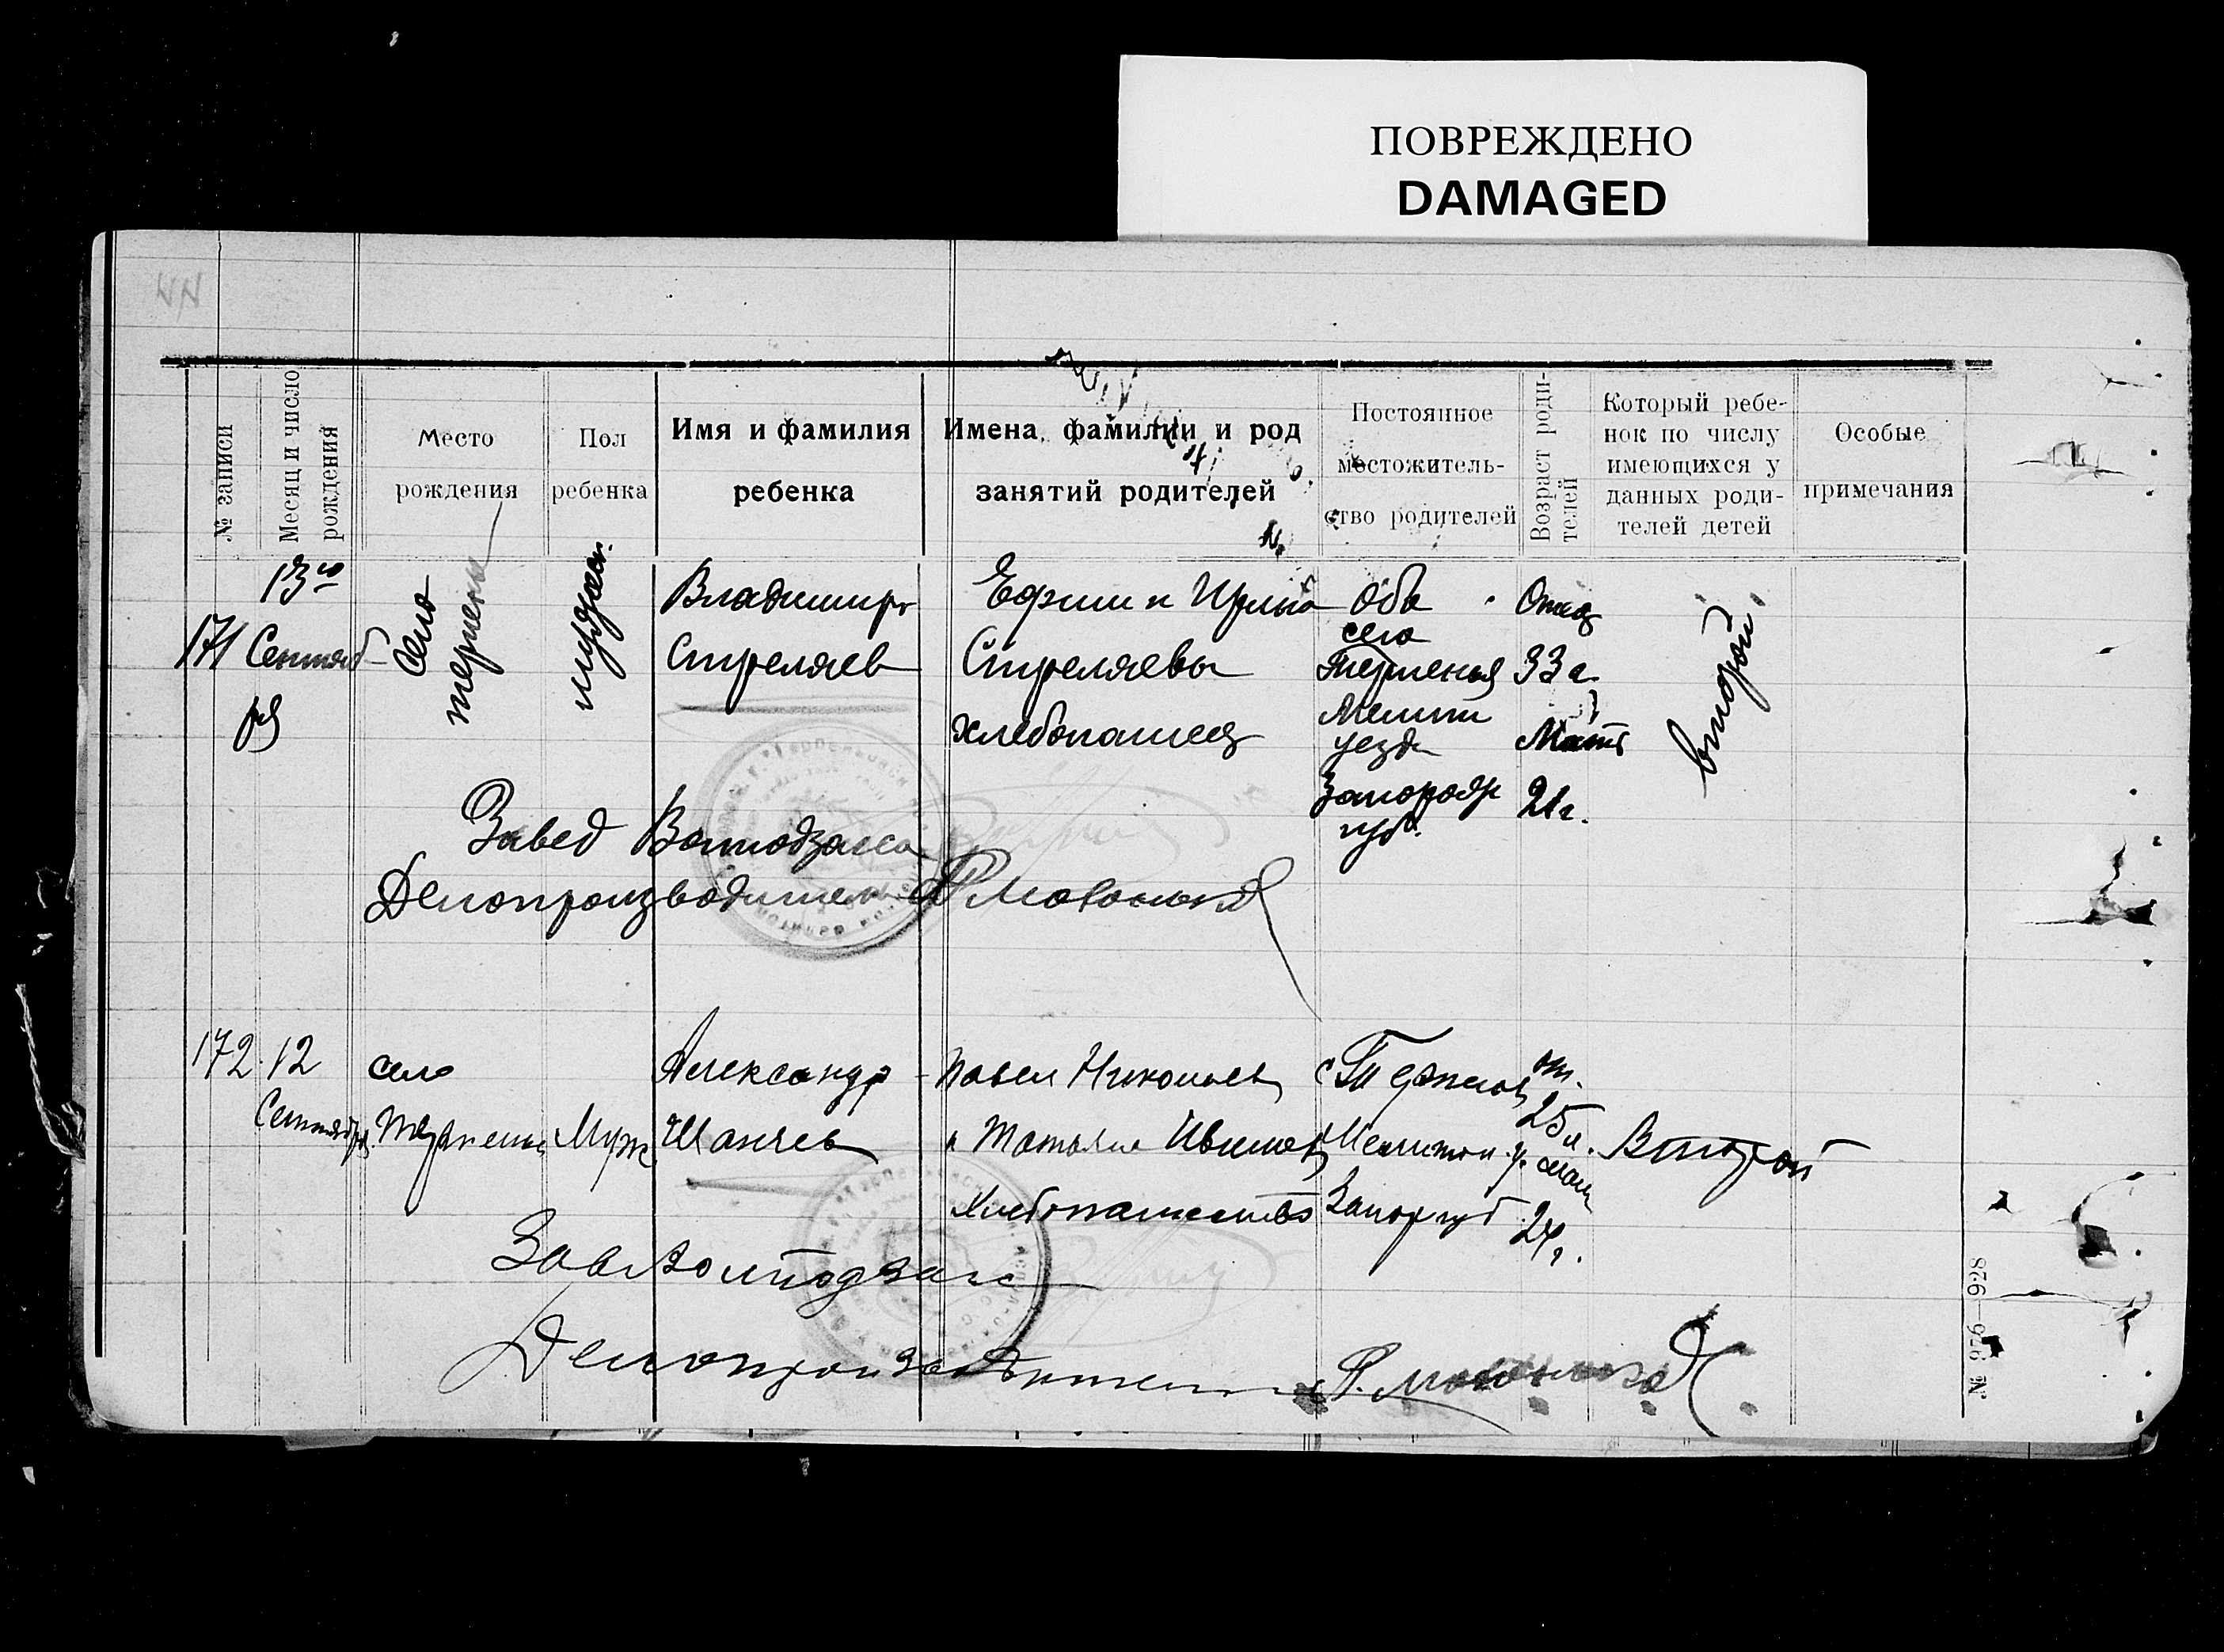 ПОВРЕЖДЕНО
DAMAGED
№ записи
Месяц и число рождения
Место рождения
Пол ребенка
Имя и фамилия ребенка
Имена, фамилии и род занятий родителей
Постоянное местожительство родителей
Возраст родителей
Который ребенок по числу имеющихся у данных родителей детей
Особые примечания
171
13го
Сентяб
ря
село
терпенье
мужск.
Владимир
Стреляев
Ефим и Ирина
Стреляевы
хлебопашец
Оба
села
Терпенья
Мелит
уезда
Запорож
губ.
Отец
33 г.
Мать
21 г.
второй
Завед Волподзагса
Делопроизводитель
172
12
Сентября
село
Терпенье
Муж
Александр
Павел Николаев
и Татьяна
Хлебопашество
с Терпенья
Мелитоп. у.
Запор губ
от.
25 л.
мать
24 г.
Второй
Зав Волподзагс
Делопроизводитель
№ 376—928